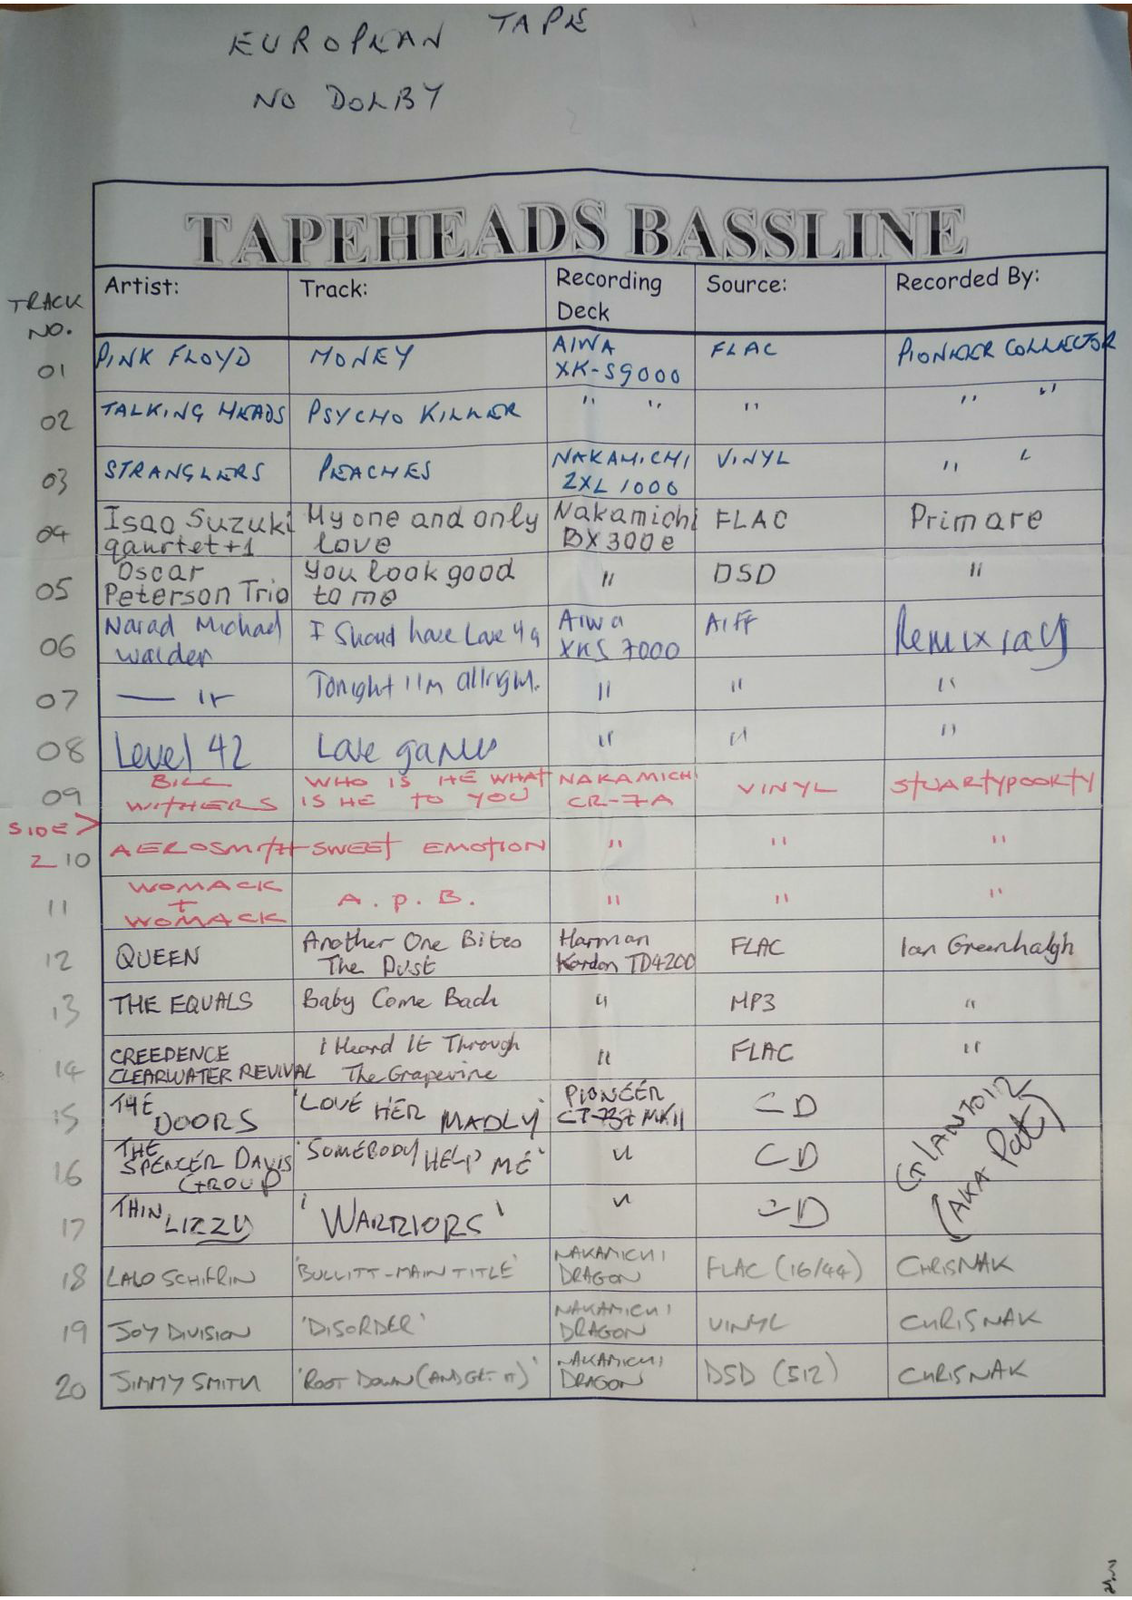 EUROPEAN TAPE
NO DOLBY
TAPEHEADS BASSLINE
TRACK NO. Artist: Track: Recording Deck Source: Recorded By:
01 PINK FLOYD MONEY AIWA XK-S9000 FLAC PIONEER COLLECTOR
02 TALKING HEADS PSYCHO KILLER " " " " "
03 STRANGLERS PEACHES NAKAMICHI ZXL 1000 VINYL " "
04 Isao Suzuki qaurtet+1 My one and only love Nakamichi BX300e FLAC Primare
05 Oscar Peterson Trio You look good to me " DSD "
06 Narad Michael Walden I Shoud have Love 4 a Aiwa XKS 7000 AIFF Remixray
07 — " Tonight I'm allright. " " "
08 Level 42 Love games " " "
09 BILL WITHERS WHO IS HE WHAT IS HE TO YOU NAKAMICHI CR-7A VINYL StUARTYPOORTY
SIDE 2 >
10 AEROSMITH SWEET EMOTION " " "
11 WOMACK + WOMACK A.P.B. " " "
12 QUEEN Another One Bites The Dust Harman Kardon TD4200 FLAC Ian Greenhalgh
13 THE EQUALS Baby Come Back " MP3 "
14 CREEDENCE CLEARWATER REVIVAL I Heard It Through The Grapevine " FLAC "
15 THE DOORS 'LOVE HER MADLY' PIONEER CT-737 MKII CD GIANTO12 (AKA Pat)
16 THE SPENCER DAVIS GROUP 'SOMEBODY HELP ME' " CD
17 THIN LIZZY 'WARRIORS' " CD
18 LALO SCHIFRIN 'BULLITT-MAIN TITLE' NAKAMICHI DRAGON FLAC (16/44) CHRISNAK
19 JOY DIVISION 'DISORDER' NAKAMICHI DRAGON VINYL CHRISNAK
20 JIMMY SMITH 'ROOT DOWN (AND GET IT)' NAKAMICHI DRAGON DSD (512) CHRISNAK